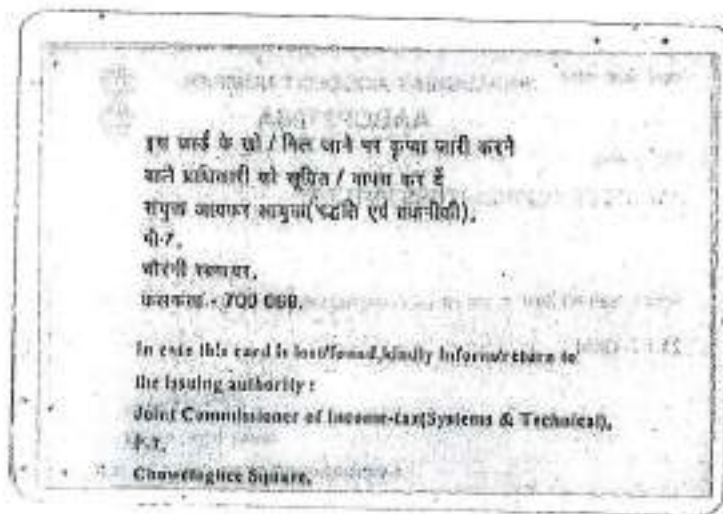 इस कार्ड के खो / मिल जाने पर कृप्या जारी करने
वाले प्राधिकारी को सूचित / वापस कर दें
संयुक्त आयकर आयुक्त(पद्धति एवं तकनीकी),
पी-7,
चौरंगी स्क्वायर,
कलकत्ता - 700 069.
In case this card is lost/found,kindly inform/return to
the issuing authority :
Joint Commissioner of Income-tax(Systems & Technical),
P-7,
Chowringhee Square,